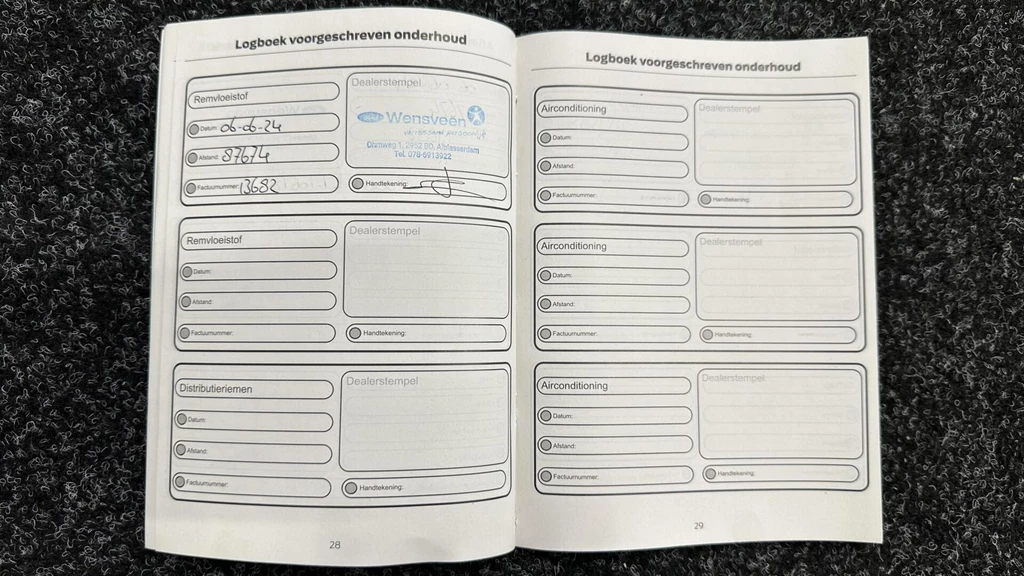 Logboek voorgeschreven onderhoud
Remvloeistof
Datum: 06-06-24
Afstand: 87674
Factuurnummer: 13682
Dealerstempel
Ford Wensveen
Tel. 078-6913922
Handtekening:
Remvloeistof
Datum:
Afstand:
Factuurnummer:
Dealerstempel
Handtekening:
Distributieriemen
Datum:
Afstand:
Factuurnummer:
Dealerstempel
Handtekening:
28
Logboek voorgeschreven onderhoud
Airconditioning
Datum:
Afstand:
Factuurnummer:
Dealerstempel
Handtekening:
Airconditioning
Datum:
Afstand:
Factuurnummer:
Dealerstempel
Handtekening:
Airconditioning
Datum:
Afstand:
Factuurnummer:
Dealerstempel
Handtekening:
29